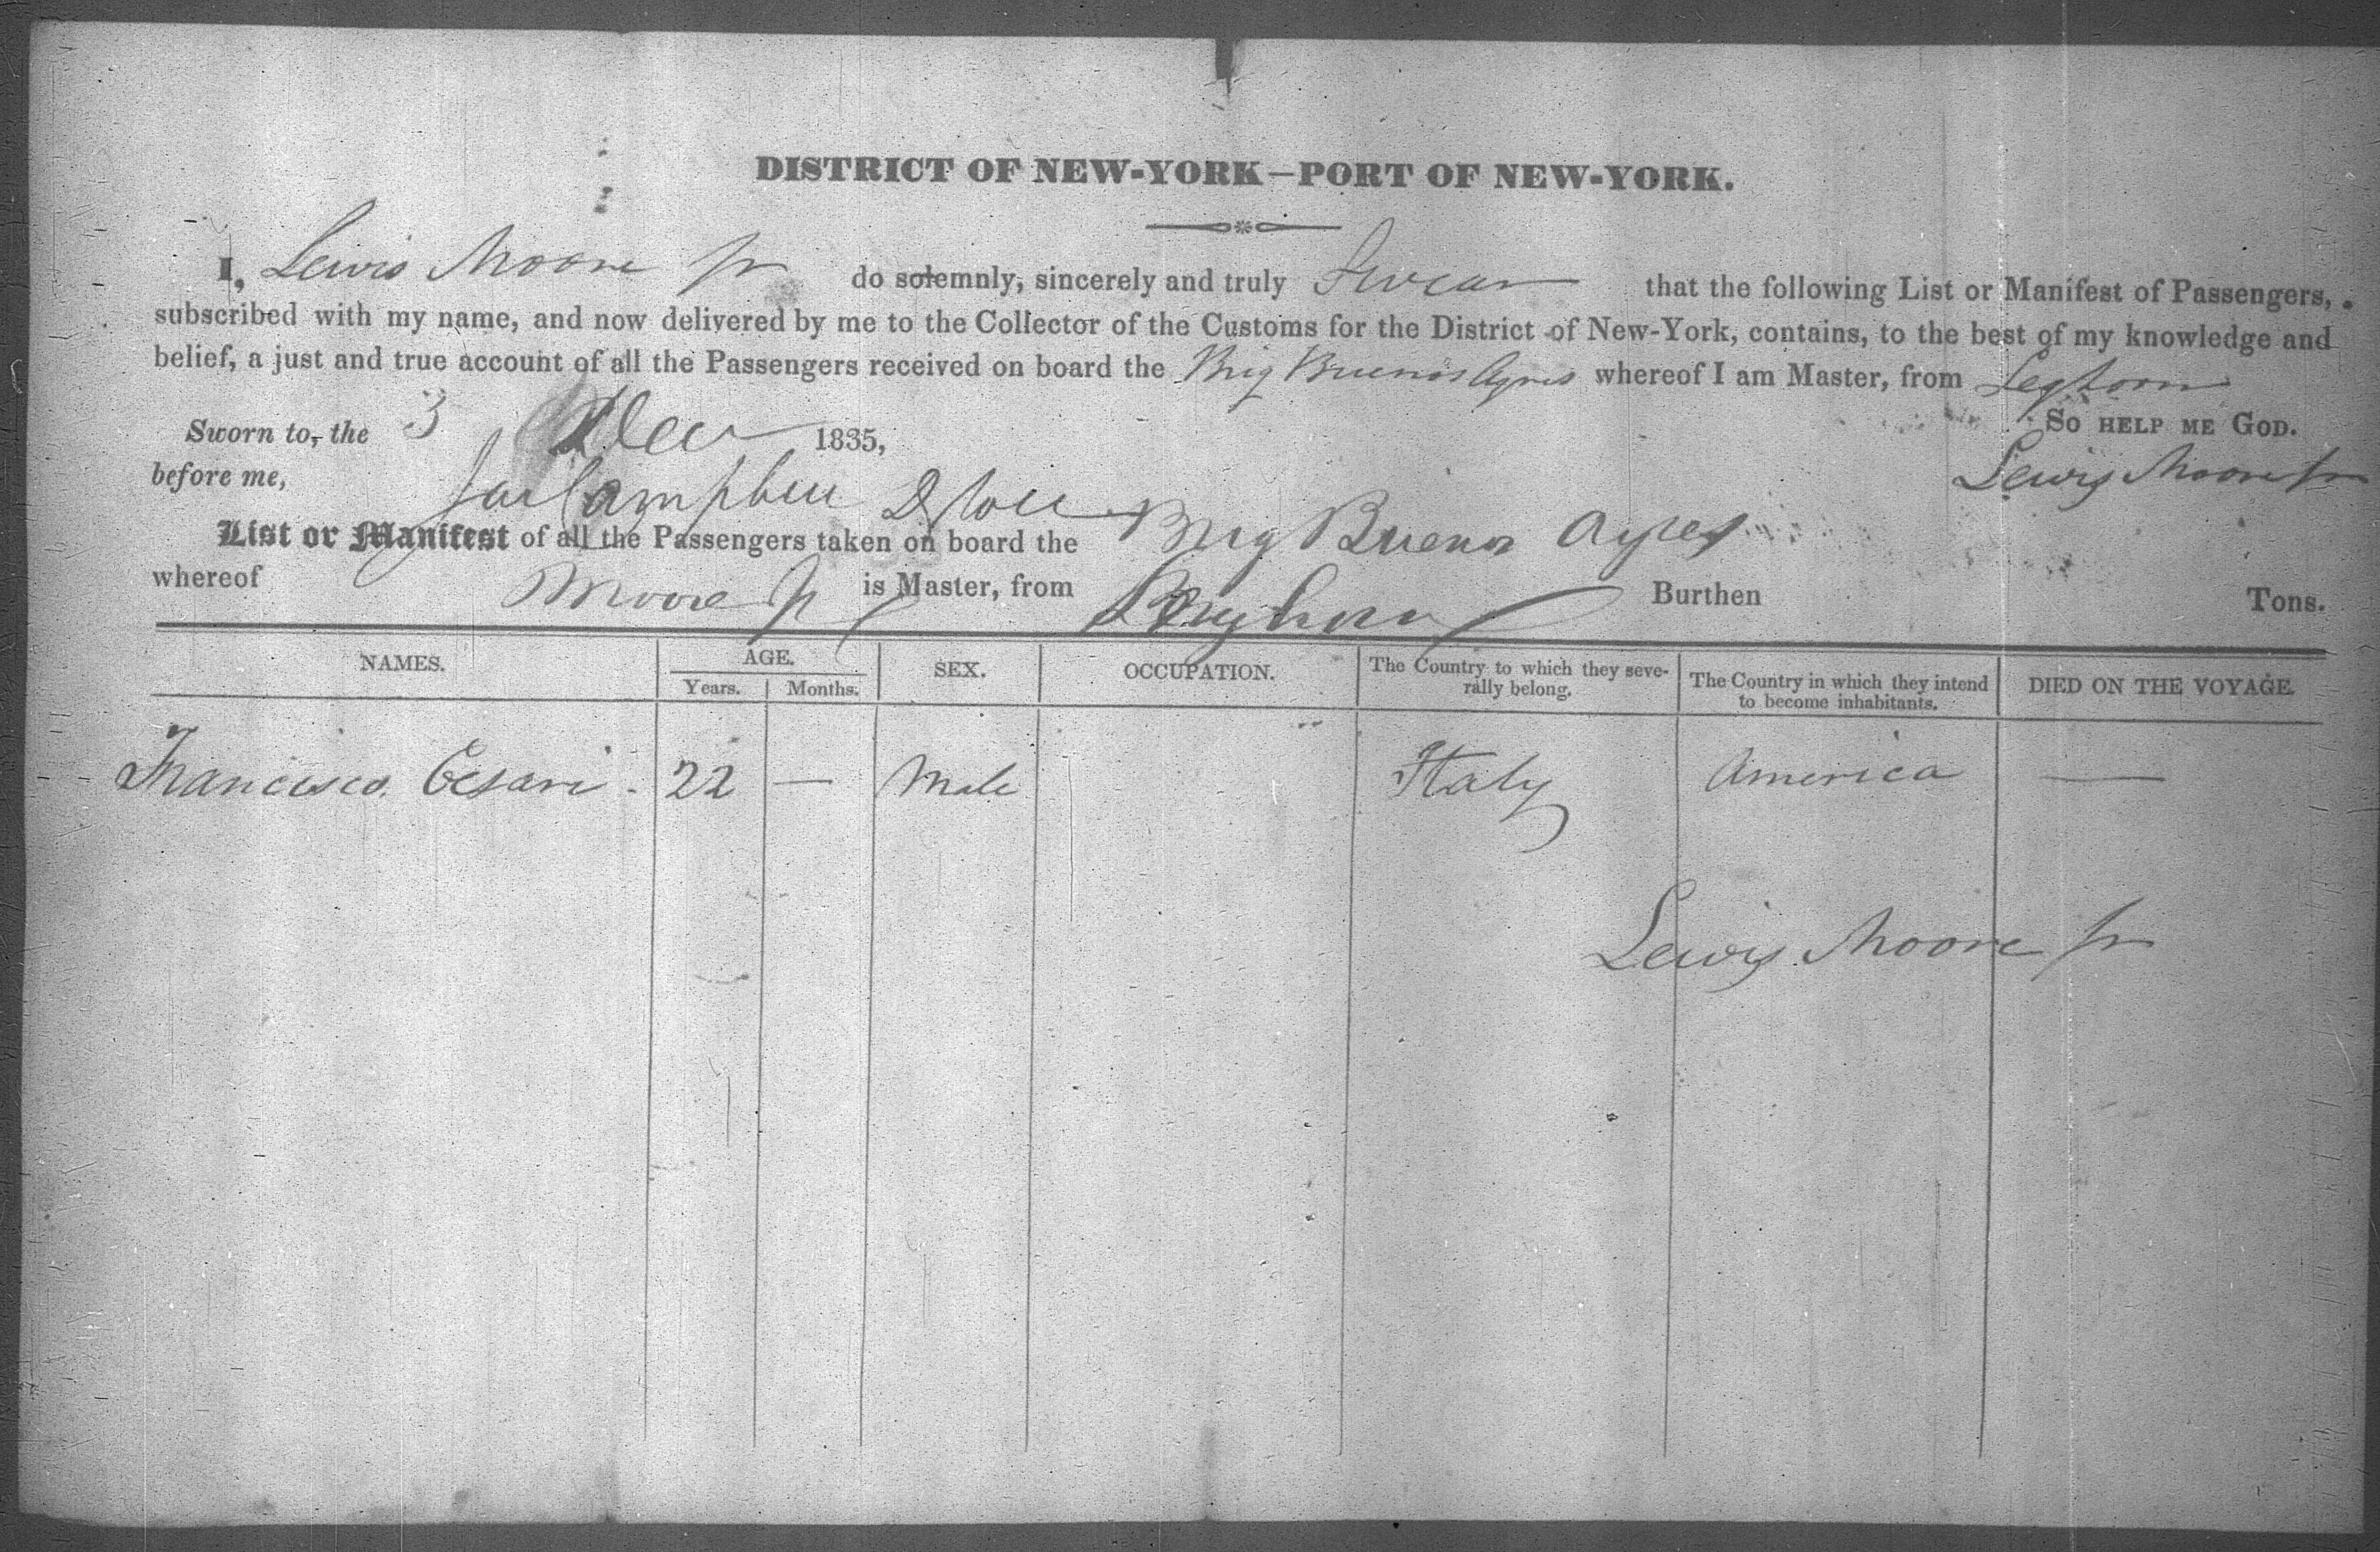 DISTRICT OF NEW-YORK—PORT OF NEW-YORK.
I, Lewis Moore Jr do solemnly, sincerely and truly Swear that the following List or Manifest of Passengers,
subscribed with my name, and now delivered by me to the Collector of the Customs for the District of New-York, contains, to the best of my knowledge and
belief, a just and true account of all the Passengers received on board the Brig Buenos Ayres whereof I am Master, from Leghorn
Sworn to, the 3 Dec 1835, So HELP ME GOD.
before me, Campbell Lewis Moore Jr
List or Manifest of all the Passengers taken on board the Brig Buenos Ayres
whereof Moore Jr is Master, from Leghorn Burthen Tons.
NAMES. AGE. SEX. OCCUPATION. The Country to which they seve-rally belong. The Country in which they intend to become inhabitants. DIED ON THE VOYAGE.
Years. Months.
Francisco Cesari - 22 — Male Italy America —
Lewis Moore Jr